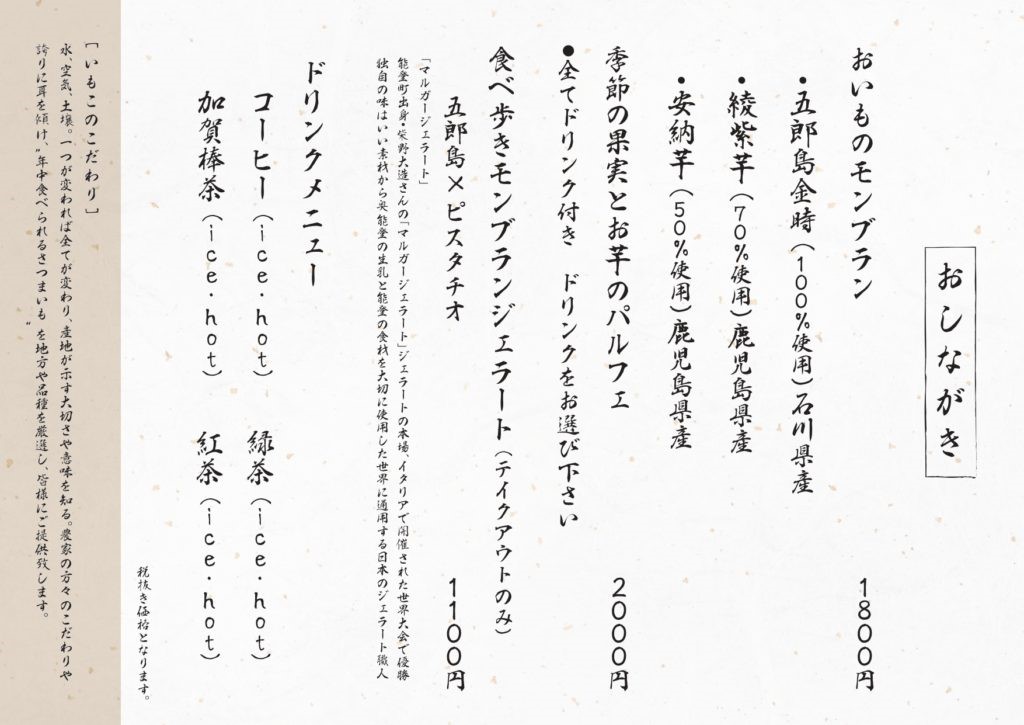 おしながき
おいものモンブラン 1800円
・五郎島金時（100%使用）石川県産
・綾紫芋（70%使用）鹿児島県産
・安納芋（50%使用）鹿児島県産
季節の果実とお芋のパルフェ 2000円
●全てドリンク付き ドリンクをお選び下さい
食べ歩きモンブランジェラート（テイクアウトのみ）
五郎島×ピスタチオ 1100円
「マルガージェラート」
能登町出身・柴野大造さんの「マルガージェラート」ジェラートの本場、イタリアで開催された世界大会で優勝
独自の味はいい素材から奥能登の生乳と能登の食材を大切に使用した世界に通用する日本のジェラート職人
ドリンクメニュー
コーヒー（ice・hot） 緑茶（ice・hot）
加賀棒茶（ice・hot） 紅茶（ice・hot）
税抜き価格となります。
［いもこのこだわり］
水、空気、土壌。一つが変われば全てが変わり、産地が示す大切さや意味を知る。農家の方々のこだわりや
誇りに耳を傾け、〝年中食べられるさつまいも〟を地方や品種を厳選し、皆様にご提供致します。